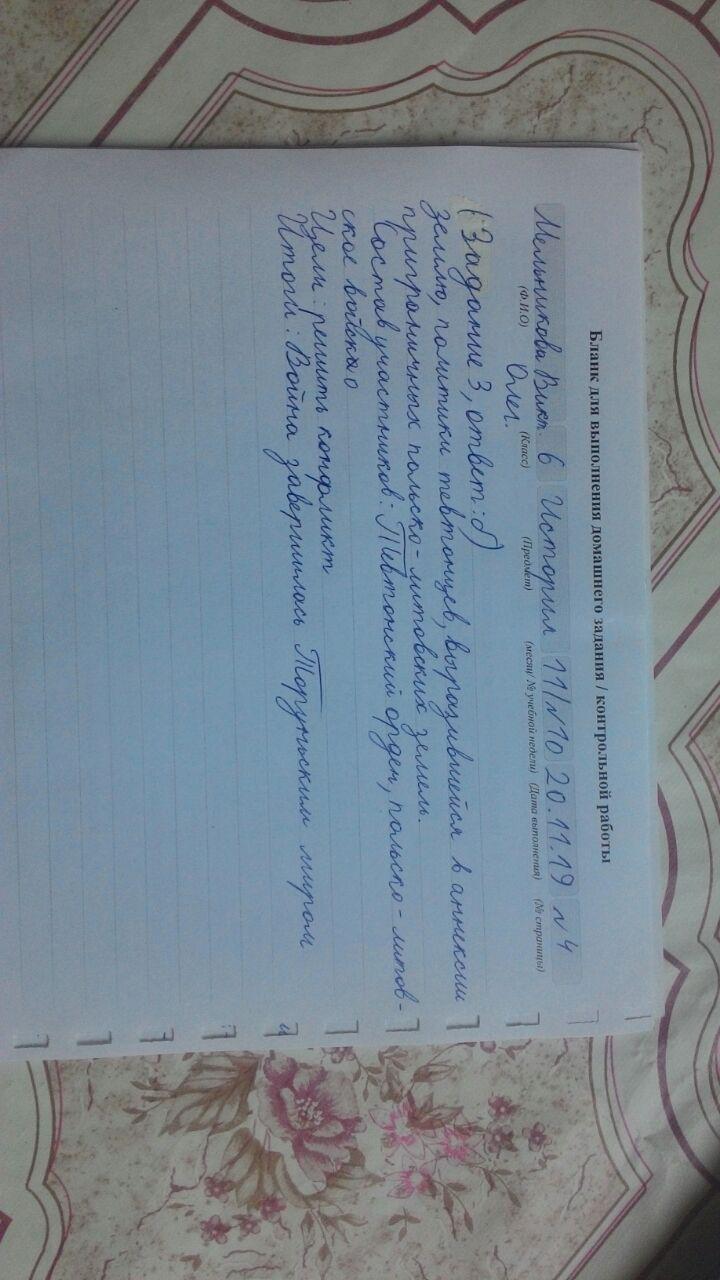 Бланк для выполнения домашнего задания / контрольной работы
Мельникова Викт. 6 История 11/№10 20.11.19 №4
(Ф.И.О) (Класс) (Предмет) (месяц/ № учебной недели) (Дата выполнения) (№ страницы)
Олег.
(Задание 3, ответ: б)
землю, политики тевтонцев, выразившейся в аннексии
приграничных польско-литовских земель.
Состав участников: Тевтонский орден, польско-литов-
ское войско
Цели: решить конфликт
Итоги: Война завершилась Торуньским миром
и